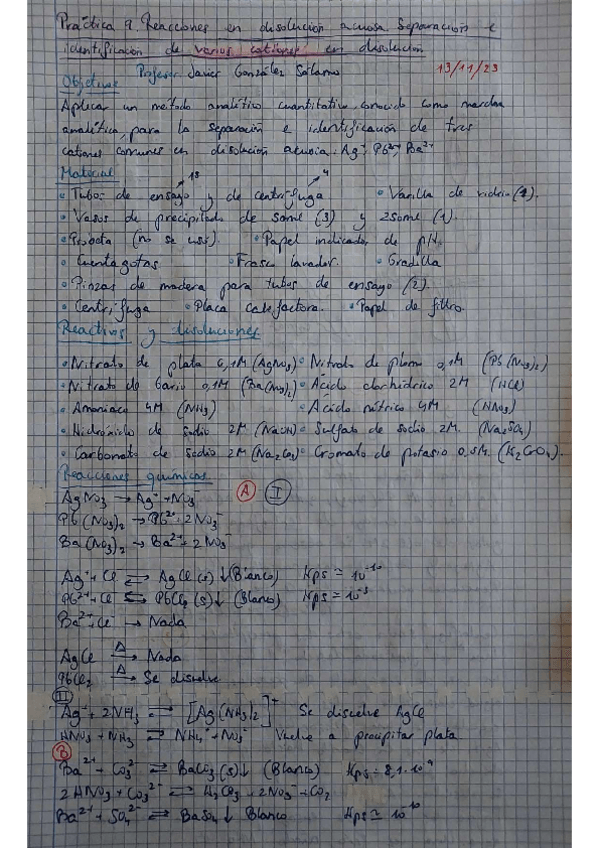 Práctica 9. Reacciones en disolución acuosa. Separación e
identificación de varios cationes en disolución
Profesor Javier González Sálamo 13/11/23
Objetivos
Aplicar un método analítico cuantitativo, conocido como marcha
analítica, para la separación e identificación de tres
cationes comunes en disolución acuosa: Ag⁺, Pb²⁺, Ba²⁺
Material
• Tubos de ensayo 18 y de centrífuga 4 • Varilla de vidrio (1).
• Vasos de precipitado de 50ml (3) y 250ml (1).
• Probeta (no se usó). • Papel indicador de pH.
• Cuentagotas • Frasco lavador. • Gradilla
• Pinzas de madera para tubos de ensayo (2).
• Centrífuga • Placa calefactora. • Papel de filtro.
Reactivos y disoluciones
• Nitrato de plata 0,1M (AgNO₃) • Nitrato de plomo 0,1M (Pb(NO₃)₂)
• Nitrato de bario 0,1M (Ba(NO₃)₂) • Ácido clorhídrico 2M (HCl)
• Amoniaco 4M (NH₃) • Ácido nítrico 4M (HNO₃)
• Hidróxido de sodio 2M (NaOH) • Sulfato de sodio 2M. (Na₂SO₄)
• Carbonato de sodio 2M (Na₂CO₃) • Cromato de potasio 0,5M. (K₂CrO₄).
Reacciones químicas
AgNO₃ → Ag⁺ + NO₃⁻ A I
Pb(NO₃)₂ → Pb²⁺ + 2NO₃⁻
Ba(NO₃)₂ → Ba²⁺ + 2NO₃⁻
Ag⁺ + Cl⁻ ⇌ AgCl(s)↓ (Blanco) Kps ≃ 10⁻¹⁰
Pb²⁺ + Cl⁻ ⇌ PbCl₂(s)↓ (Blanco) Kps ≃ 10⁻⁵
Ba²⁺ + Cl⁻ → Nada
AgCl →Δ Nada
PbCl₂ →Δ Se disuelve
II
Ag⁺ + 2NH₃ ⇌ [Ag(NH₃)₂]⁺ Se disuelve AgCl
HNO₃ + NH₃ ⇌ NH₄⁺ + NO₃⁻ Vuelve a precipitar plata
B
Ba²⁺ + CO₃²⁻ ⇌ BaCO₃(s)↓ (Blanco) Kps = 8,1·10⁻⁹
2HNO₃ + CO₃²⁻ ⇌ H₂CO₃ + 2NO₃⁻ + CO₂
Ba²⁺ + SO₄²⁻ ⇌ BaSO₄↓ Blanco Kps ≃ 10⁻¹⁰